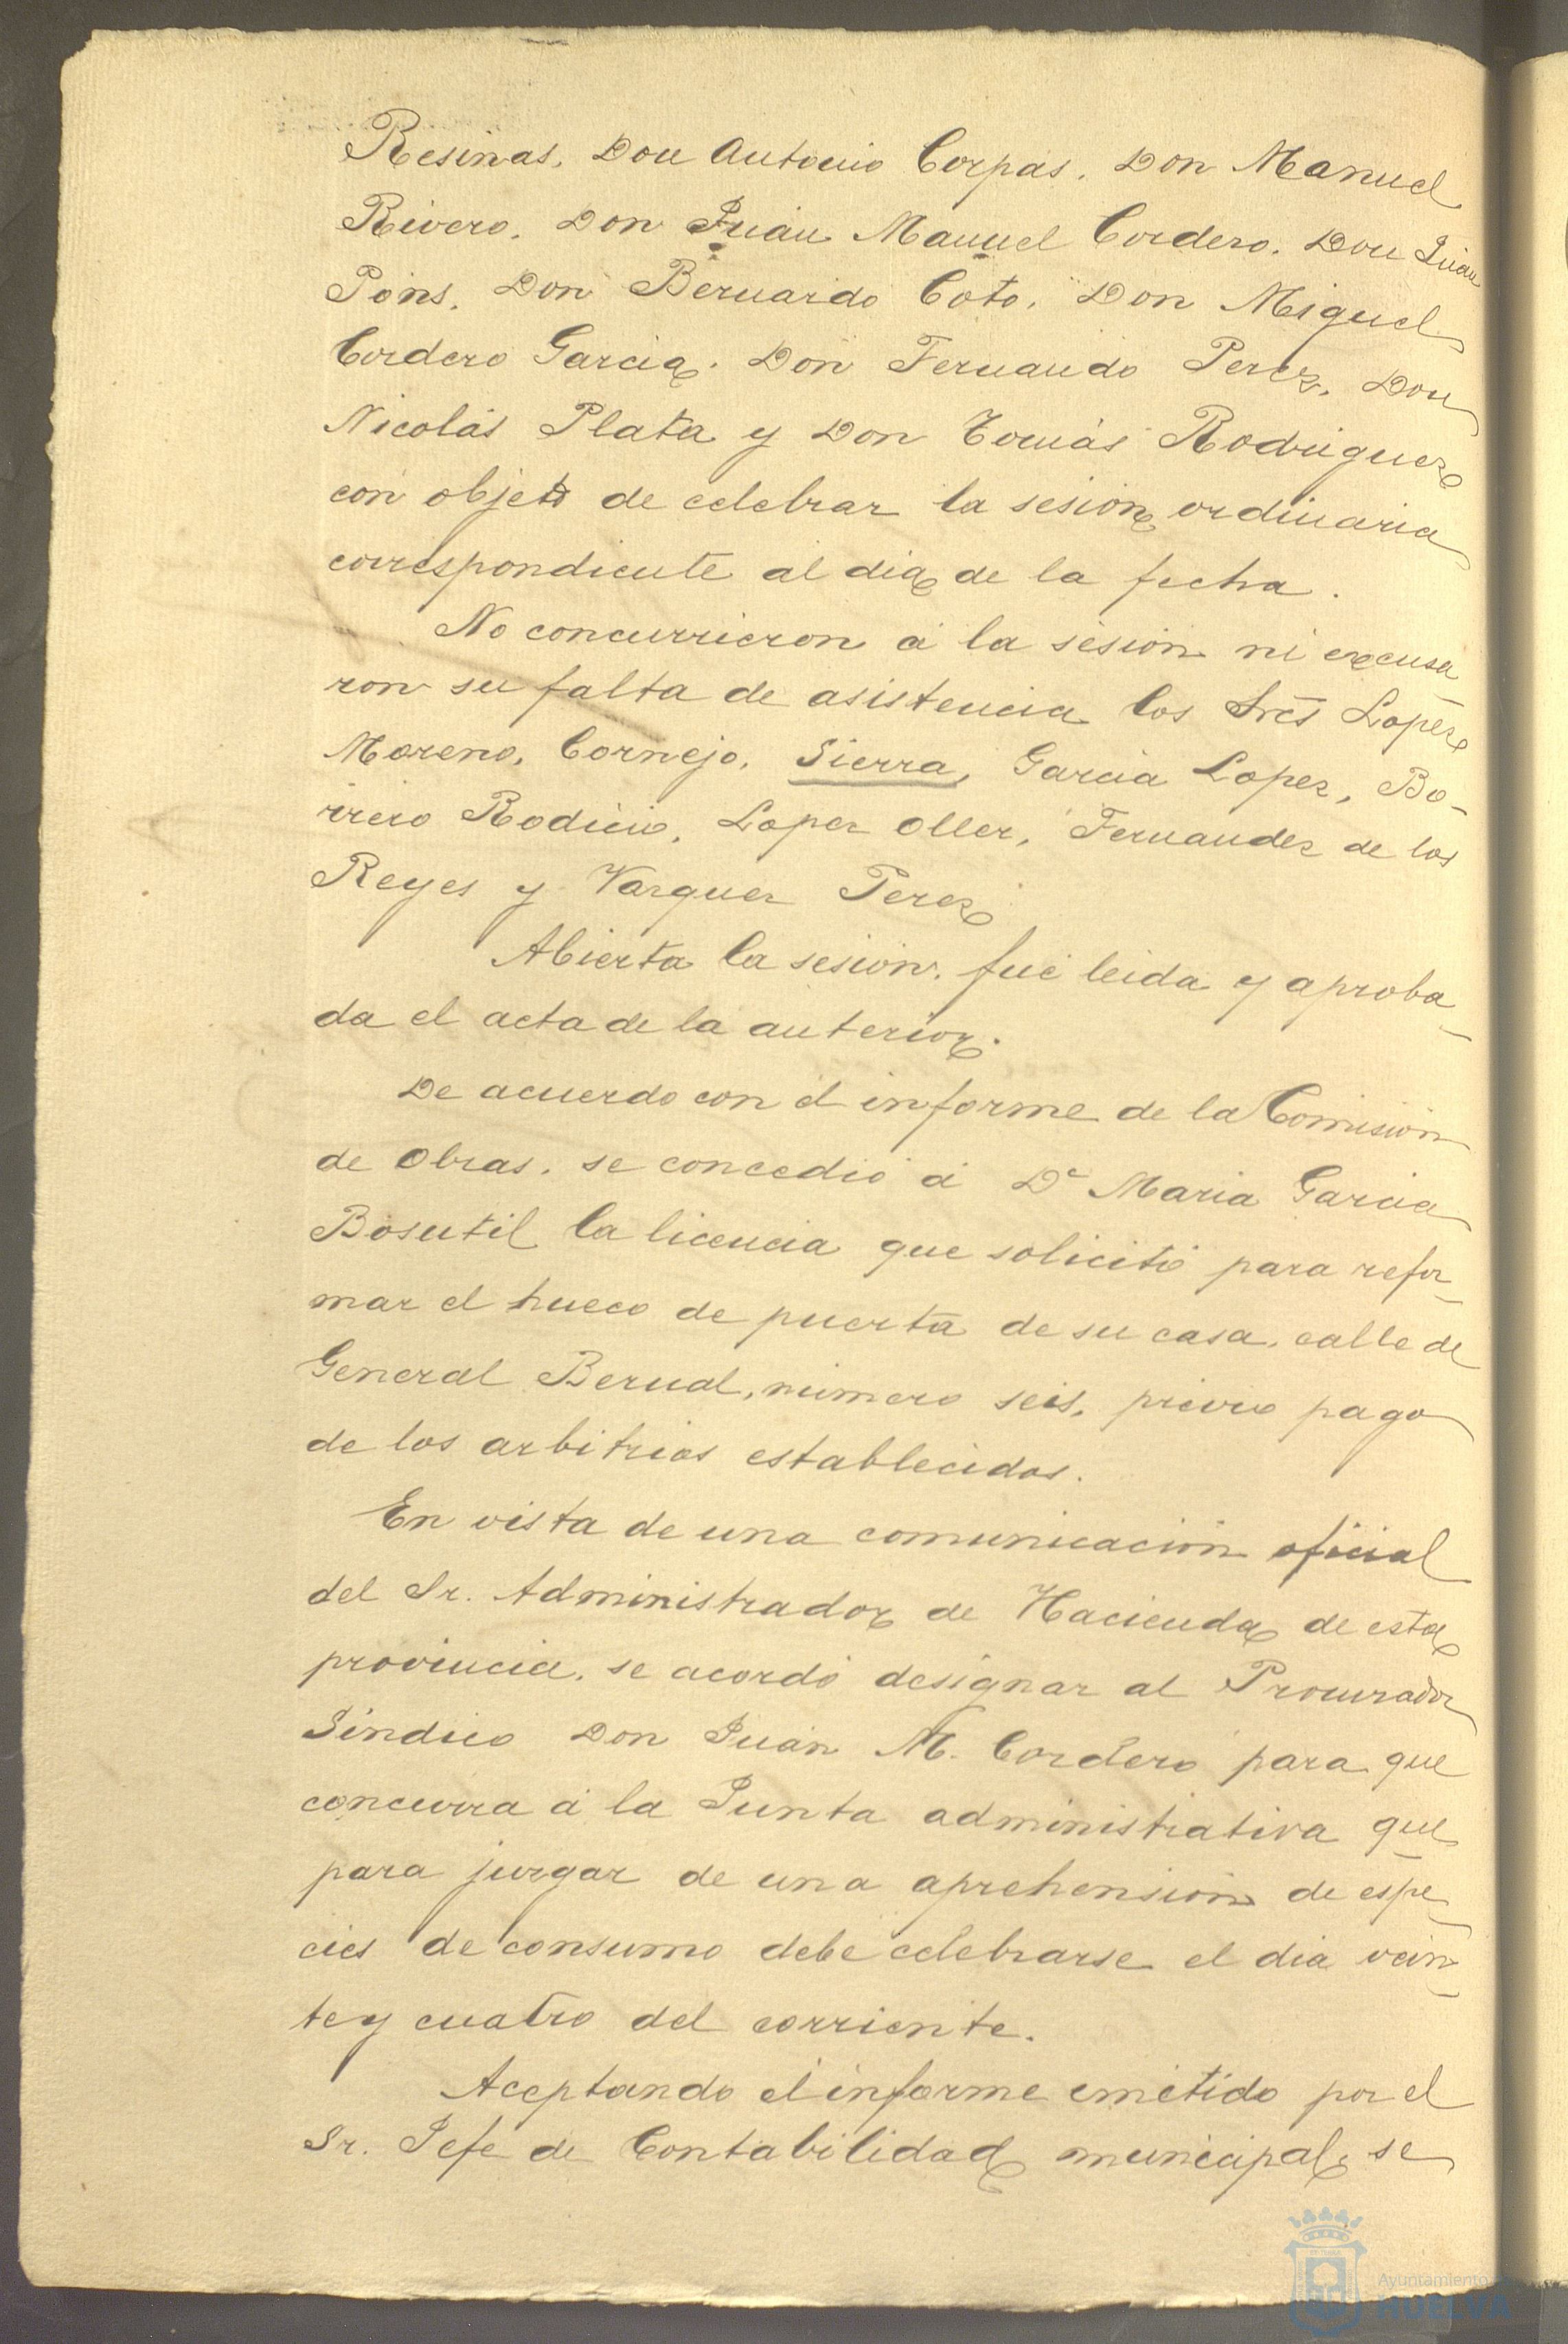 Resinas, Don Antonio Corpas, Don Manuel
Rivero, Don Juan Manuel Cordero, Don Juan
Pons, Don Bernardo Coto, Don Miguel
Cordero Garcia, Don Fernando Perez, Don
Nicolás Plata y Don Tomás Rodriguez
con objeto de celebrar la sesion ordinaria
correspondiente al dia de la fecha.
No concurrieron á la sesion ni excusa
ron su falta de asistencia los Sres Lopez
Moreno, Cornejo, Sierra, Garcia Lopez, Bo-
rrero Rodicio, Lopez Oller, Fernandez de los
Reyes y Vazquez Perez
Abierta la sesion, fué leida y aproba
da el acta de la anterior.
De acuerdo con el informe de la Comision
de Obras, se concedió á Dª Maria Garcia
Bosutil la licencia que solicitó para refor
mar el hueco de puerta de su casa, calle de
General Bernal, número seis, previo pago
de los arbitrios establecidos.
En vista de una comunicacion oficial
del Sr. Administrador de Hacienda de esta
provincia, se acordó designar al Procurador
Síndico Don Juan M. Cordero para que
concurra á la Junta administrativa que
para juzgar de una aprehension de espe
cies de consumo debe celebrarse el dia vein
te y cuatro del corriente.
Aceptando el informe emitido por el
Sr. Jefe de Contabilidad municipal, se
Ayuntamiento
HUELVA